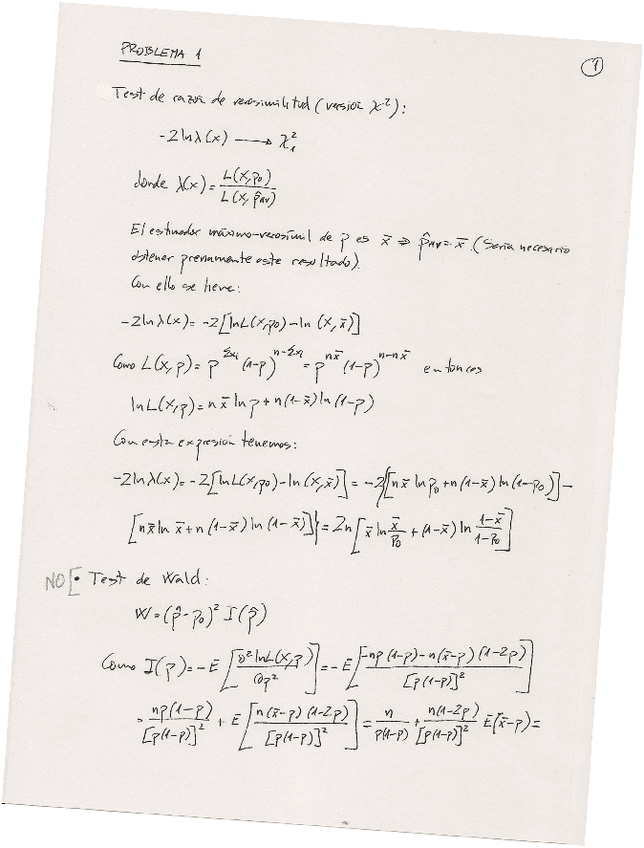 PROBLEMA 1
1
Test de razón de verosimilitud (versión χ²):
-2lnλ(x) ⟶ χ²₁
donde λ(x) = L(X,p₀) / L(X,p̂_MV)
El estimador máximo-verosímil de p es x̄ ⇒ p̂_MV = x̄. (Sería necesario
obtener previamente este resultado).
Con ello se tiene:
-2lnλ(x) = -2[lnL(X,p₀) - ln(X,x̄)]
Como L(X,p) = p^{Σxᵢ} (1-p)^{n-Σxᵢ} = p^{nx̄} (1-p)^{n-nx̄} entonces
lnL(X,p) = n x̄ ln p + n(1-x̄) ln(1-p)
Con esta expresión tenemos:
-2lnλ(x) = -2[lnL(X,p₀) - ln(X,x̄)] = -2{[n x̄ ln p₀ + n(1-x̄) ln(1-p₀)] -
[n x̄ ln x̄ + n(1-x̄) ln(1-x̄)]} = 2n[x̄ ln x̄/p₀ + (1-x̄) ln (1-x̄)/(1-p₀)]
NO [• Test de Wald:
W = (p̂ - p₀)² I(p̂)
Como I(p) = -E[∂² lnL(X,p) / ∂p²] = -E[(-np(1-p) - n(x̄-p)(1-2p)) / [p(1-p)]²]
= np(1-p) / [p(1-p)]² + E[n(x̄-p)(1-2p) / [p(1-p)]²] = n / p(1-p) + n(1-2p) / [p(1-p)]² E[x̄-p] =